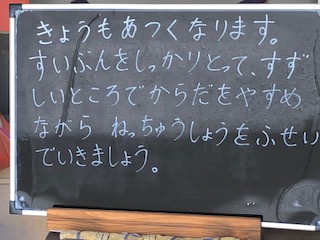 きょうもあつくなります。
すいぶんをしっかりとって、すず
しいところでからだをやすめ
ながら ねっちゅうしょうをふせい
でいきましょう。